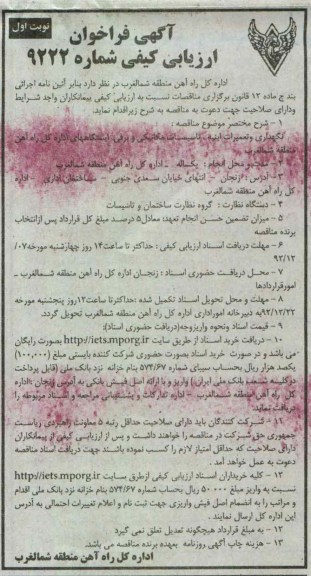 نوبت اول
آگهی فراخوان
ارزیابی کیفی شماره ۹۲۲۲
اداره کل راه آهن منطقه شمالغرب در نظر دارد بنابر آئین نامه اجرائی
بند ج ماده ۱۲ قانون برگزاری مناقصات نسبت به ارزیابی کیفی پیمانکاران واجد شرایط
ودارای صلاحیت جهت دعوت به مناقصه به شرح زیراقدام نماید.
۱ - شرح مختصر موضوع مناقصه :
نگهداری وتعمیرات ابنیه - تاسیسات مکانیکی و برقی ایستگاههای اداره کل راه آهن
منطقه شمالغرب
۲ - مدت و محل انجام : یکساله - اداره کل راه آهن منطقه شمالغرب
۳ - آدرس : زنجان - انتهای خیابان سعدی جنوبی - ساختمان اداری - اداره
کل راه آهن منطقه شمالغرب
۴ - دستگاه نظارت : گروه نظارت ساختمان و تاسیسات
۵ - میزان تضمین حسن انجام تعهد: معادل ۵ درصد مبلغ کل قرارداد پس ازانتخاب
برنده مناقصه
۶ - مهلت دریافت اسناد ارزیابی کیفی : حداکثر تا ساعت ۱۴ روز چهارشنبه مورخه ۰۷/
۹۲/۱۲
۷ - محل دریافت حضوری اسناد : زنجان اداره کل راه آهن منطقه شمالغرب -
امورقراردادها
۸ - مهلت و محل تحویل اسناد تکمیل شده :حداکثرتا ساعت ۱۲روز پنجشنبه مورخه
۹۲/۱۲/۲۲به دبیرخانه اموراداری اداره کل راه آهن منطقه شمالغرب تحویل گردد.
۹ - قیمت اسناد ونحوه واریزوجه(دریافت حضوری اسناد):
۱۰ - دریافت خرید اسناد از طریق سایت http://iets.mporg.ir بصورت رایگان
می باشد و در صورت خرید اسناد بصورت حضوری شرکت کننده بایستی مبلغ (۱۰۰,۰۰۰)
یکصد هزار ریال بحساب سیبای شماره ۵۷۴/۶۷ بنام خزانه نزد بانک ملی (قابل پرداخت
درکلیه شعب بانک ملی ایران) واریز و با ارائه اصل فیش بانکی به آدرس زنجان :اداره
کل راه آهن منطقه شمالغرب - اداره تدارکات و پشتیبانی مراجعه و اسناد مربوطه را
دریافت نمایند.
۱۱ - شرکت کنندگان باید دارای صلاحیت حداقل رتبه ۵ معاونت راهبردی ریاست
جمهوری حق شرکت در مناقصه را خواهند داشت و پس از ارزیابی کیفی از پیمانکاران
دارای صلاحیت که حداقل امتیاز لازم را کسب نموده باشند جهت دریافت اسناد مناقصه
دعوت به عمل خواهد آمد .
۱۲ - کلیه خریداران اسناد ارزیابی کیفی ازطریق سایت http://iets.mporg.ir
نسبت به واریز مبلغ ۵۰۰۰۰ ریال بحساب شماره ۵۷۴/۶۷ بنام خزانه نزد بانک ملی اقدام
و مراتب را به انضمام اصل فیش واریزی جهت ثبت نام و اعلام تغییرات احتمالی به آدرس
این اداره کل ارسال نمایند .
۱۲ - به مبلغ قرارداد هیچگونه تعدیل تعلق نمی گیرد
۱۳ - هزینه چاپ آگهی روزنامه بعهده برنده مناقصه می باشد.
اداره کل راه آهن منطقه شمالغرب